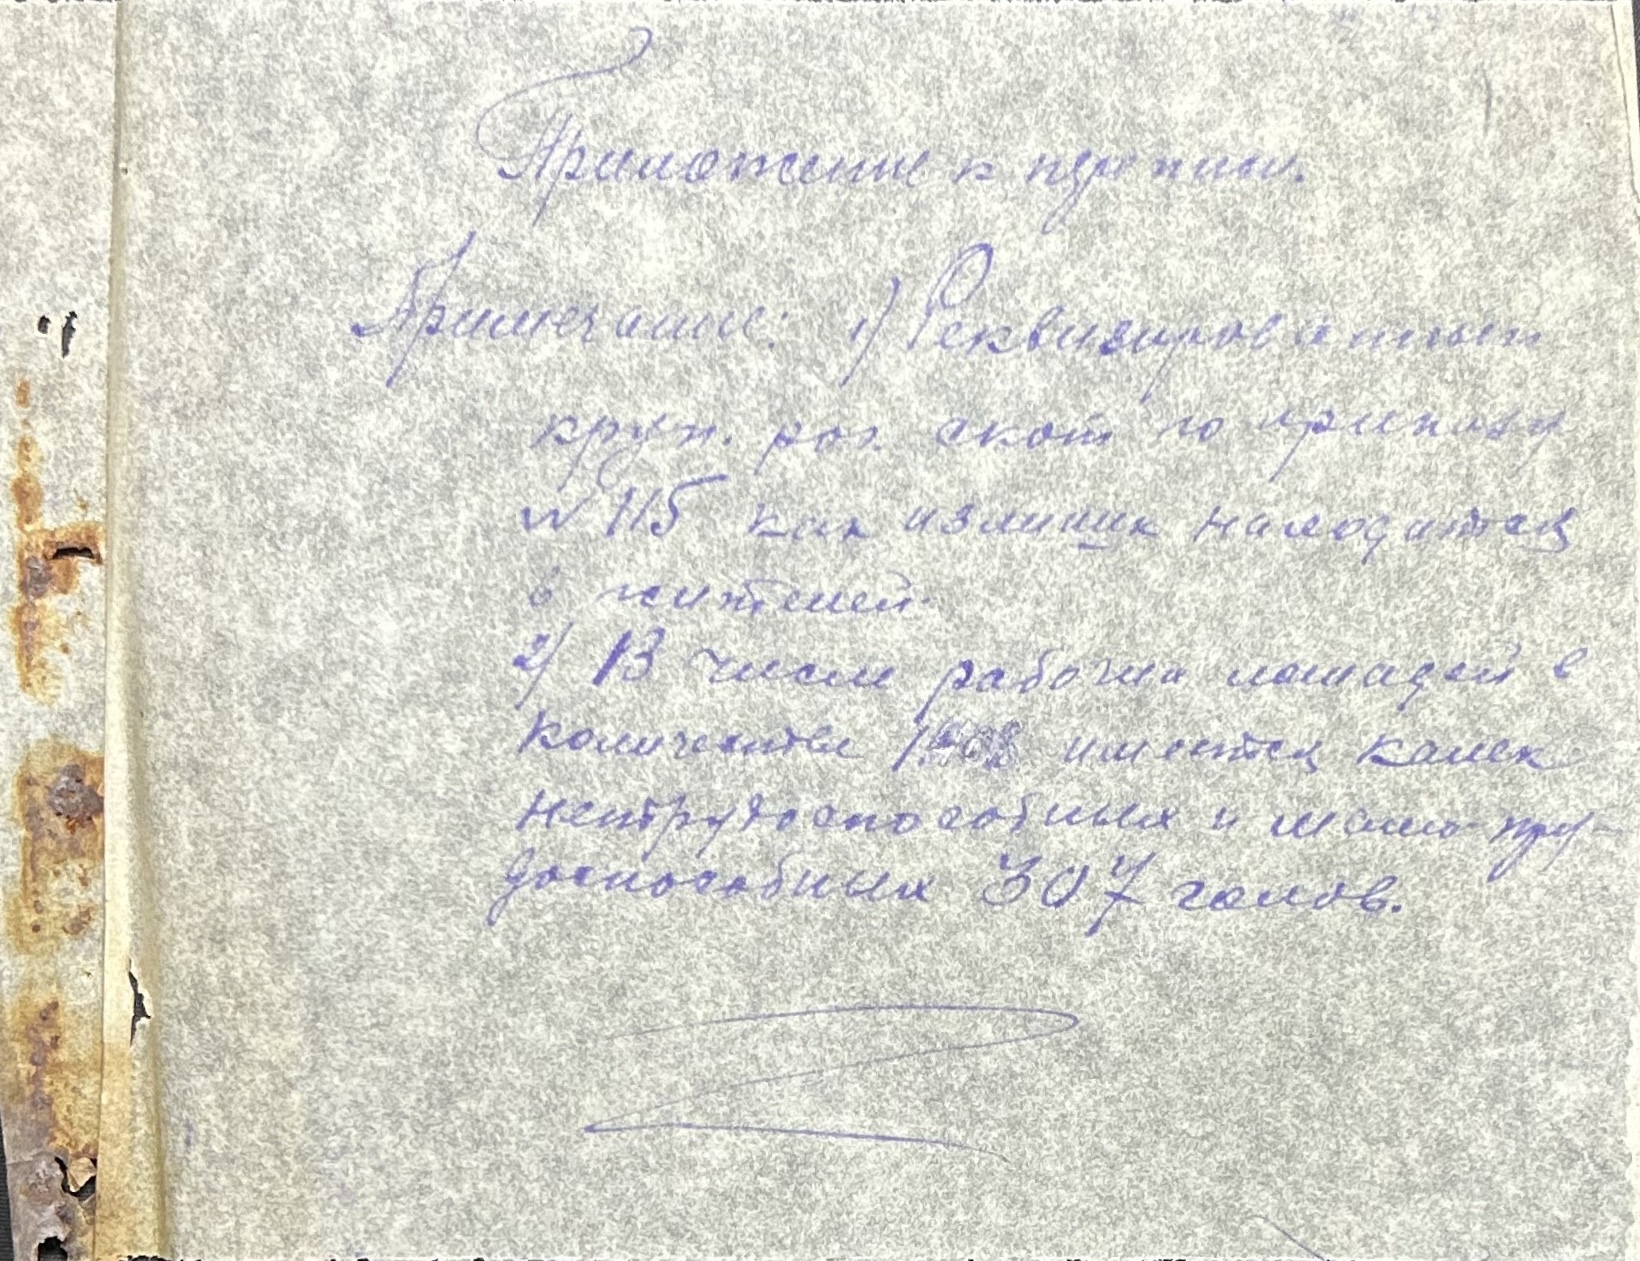 Приложение к переписи.
Примечание: 1) Реквизированный
круп. рог. скот по приказу
№ 115 как излишек находится
у жителей.
2) В числе рабочих лошадей в
количестве имеется калек
нетрудоспособных и мало тру-
доспособных 307 голов.